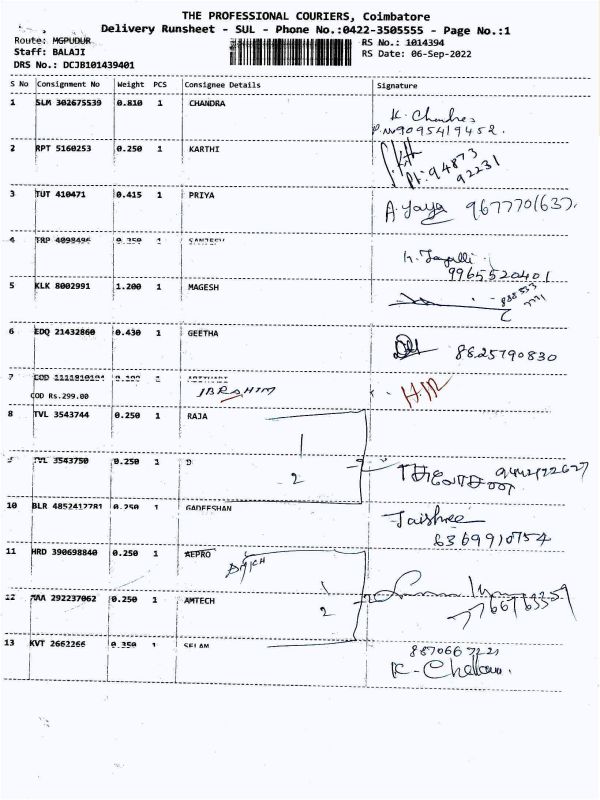 THE PROFESSIONAL COURIERS, Coimbatore
Delivery Runsheet - SUL - Phone No.:0422-3505555 - Page No.:1
Route: MGPUDUR
Staff: BALAJI
DRS No.: DCJB101439401
RS No.: 1014394
RS Date: 06-Sep-2022
S No Consignment No Weight PCS Consignee Details Signature
1 SLM 302675539 0.810 1 CHANDRA
K. Chandra
P.No 9095419452.
2 RPT 5160253 0.250 1 KARTHI
Ph: 94873
92231
3 TUT 410471 0.415 1 PRIYA
A. Jaya 9677701637.
4 TRP 4098496 0.350 1 SANJEEV
9965520401
5 KLK 8002991 1.200 1 MAGESH
6 EDQ 21432860 0.430 1 GEETHA
8825790830
7 COD 1
COD Rs.299.00
IBRAHIM
8 TVL 3543744 0.250 1 RAJA
1
9 TVL 3543750 0.250 1 D
2
10 BLR 4852412781 0.250 1 GADEESHAN
Jaishree
6369910754
11 HRD 390698840 0.250 1 AEPRO
1
12 MAA 292237062 0.250 1 AMTECH
2
13 KVT 2662266 0.350 1 SELAM
K - Chellam.